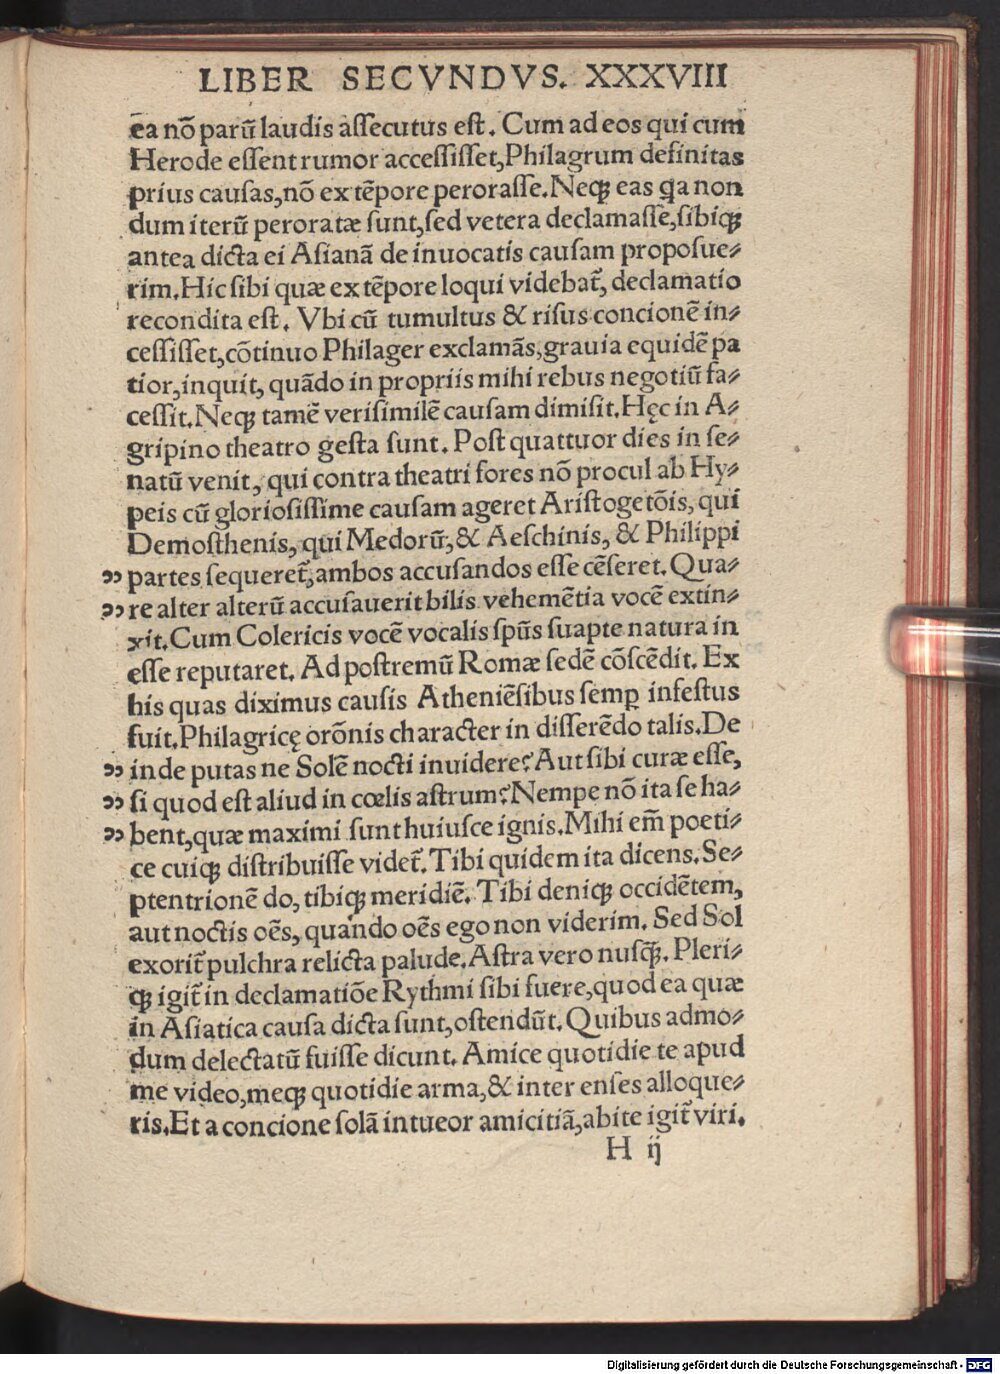 LIBER SECVNDVS. XXXVIII
ea nõ parũ laudis aſſecutus eſt. Cum ad eos qui cum
Herode eſſent rumor acceſſiſſet, Philagrum definitas
prius cauſas, nõ ex tẽpore peroraſſe. Neqꝫ eas qa non
dum iterũ peroratæ ſunt, ſed vetera declamaſſe, ſibiqꝫ
antea dicta ei Aſianã de inuocatis cauſam propoſue⸗
rim. Hic ſibi quæ ex tẽpore loqui videbat̃, declamatio
recondita eſt. Vbi cũ tumultus & riſus concionẽ in⸗
ceſſiſſet, cõtinuo Philager exclamãs, grauia equidẽ pa
tior, inquit, quãdo in propriis mihi rebus negotiũ fa⸗
ceſſit. Neqꝫ tamẽ veriſimilẽ cauſam dimiſit. Hęc in A⸗
gripino theatro geſta ſunt. Poſt quattuor dies in ſe⸗
natũ venit, qui contra theatri fores nõ procul ab Hy⸗
peis cũ glorioſiſſime cauſam ageret Ariſtogetõis, qui
Demoſthenis, qui Medorũ, & Aeſchinis, & Philippi
„ partes ſequeret̃, ambos accuſandos eſſe cẽſeret. Qua⸗
„ re alter alterũ accuſauerit bilis vehemẽtia vocẽ extin⸗
xit. Cum Colericis vocẽ vocalis ſpũs ſuapte natura in
eſſe reputaret. Ad poſtremũ Romæ ſedẽ cõſcẽdit. Ex
his quas diximus cauſis Atheniẽſibus ſemꝑ infeſtus
fuit. Philagricę orõnis character in diſſerẽdo talis. De
„ inde putas ne Solẽ nocti inuidere? Aut ſibi curæ eſſe,
„ ſi quod eſt aliud in cœlis aſtrum? Nempe nõ ita ſe ha⸗
„ bent, quæ maximi ſunt huiuſce ignis. Mihi em̃ poeti⸗
ce cuiqꝫ diſtribuiſſe videt̃. Tibi quidem ita dicens. Se⸗
ptentrionẽ do, tibiqꝫ meridiẽ. Tibi deniqꝫ occidẽtem,
aut noctis oẽs, quando oẽs ego non viderim. Sed Sol
exorit̃ pulchra relicta palude. Aſtra vero nuſq̃ꝫ. Pleri⸗
qꝫ igit̃ in declamatiõe Rythmi ſibi fuere, quod ea quæ
in Aſiatica cauſa dicta ſunt, oſtendũt. Quibus admo⸗
dum delectatũ fuiſſe dicunt. Amice quotidie te apud
me video, meqꝫ quotidie arma, & inter enſes alloque⸗
ris. Et a concione ſolã intueor amicitiã, abite igit̃ viri.
H ij
Digitalisierung gefördert durch die Deutsche Forschungsgemeinschaft - DFG